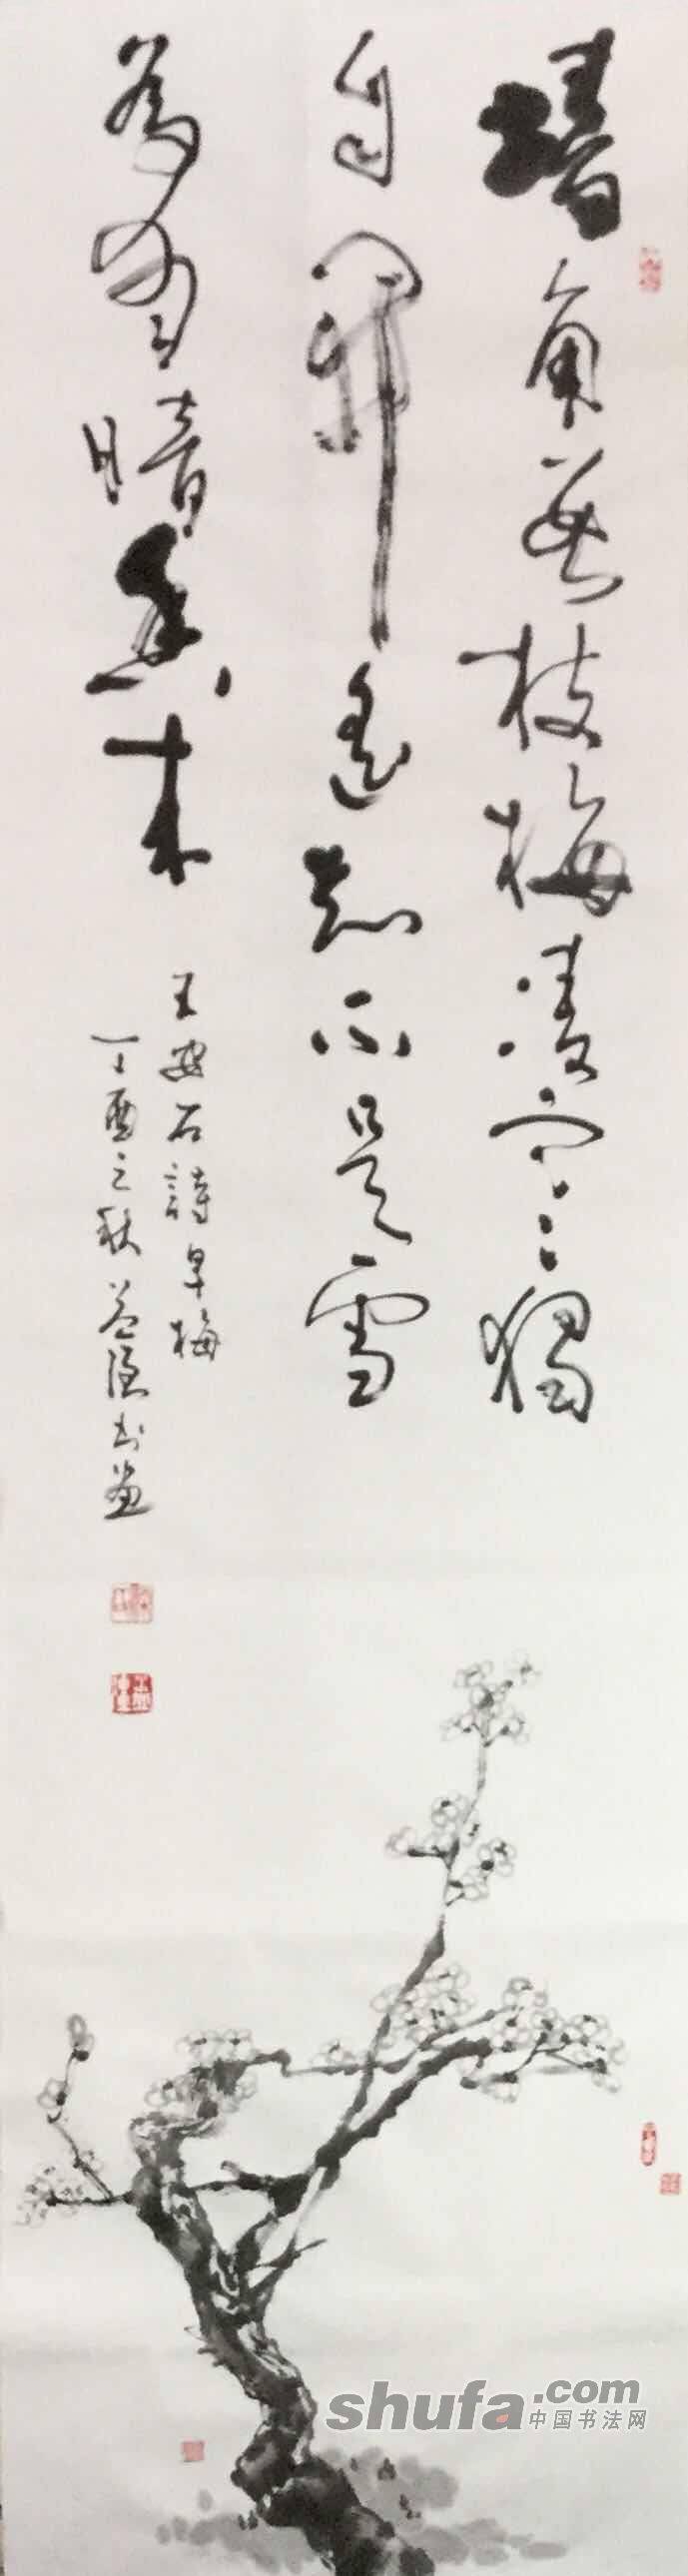 墙角數枝梅凌寒獨
自開遙知不是雪
為有暗香來
王安石詩早梅
丁酉之秋益泽书画
shufa.com
中国书法网